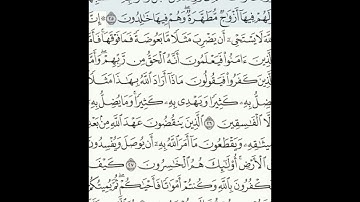 وَلَهُمْ فِيهَا أَزْوَٰجٌ مُّطَهَّرَةٌ وَهُمْ فِيهَا خَٰلِدُونَ ۝٢٥ إِنَّ
ٱللَّهَ لَا يَسْتَحْىِۦٓ أَن يَضْرِبَ مَثَلًا مَّا بَعُوضَةً فَمَا فَوْقَهَا فَأَمَّا
ٱلَّذِينَ ءَامَنُوا۟ فَيَعْلَمُونَ أَنَّهُ ٱلْحَقُّ مِن رَّبِّهِمْ وَأَمَّا
ٱلَّذِينَ كَفَرُوا۟ فَيَقُولُونَ مَاذَآ أَرَادَ ٱللَّهُ بِهَٰذَا مَثَلًا
يُضِلُّ بِهِۦ كَثِيرًا وَيَهْدِى بِهِۦ كَثِيرًا وَمَا يُضِلُّ بِهِۦٓ
إِلَّا ٱلْفَٰسِقِينَ ۝٢٦ ٱلَّذِينَ يَنقُضُونَ عَهْدَ ٱللَّهِ مِنۢ بَعْدِ
مِيثَٰقِهِۦ وَيَقْطَعُونَ مَآ أَمَرَ ٱللَّهُ بِهِۦٓ أَن يُوصَلَ وَيُفْسِدُونَ
ٱلْأَرْضِ أُو۟لَٰٓئِكَ هُمُ ٱلْخَٰسِرُونَ ۝٢٧ كَيْفَ
تَكْفُرُونَ بِٱللَّهِ وَكُنتُمْ أَمْوَٰتًا فَأَحْيَٰكُمْ ثُمَّ يُمِيتُكُمْ